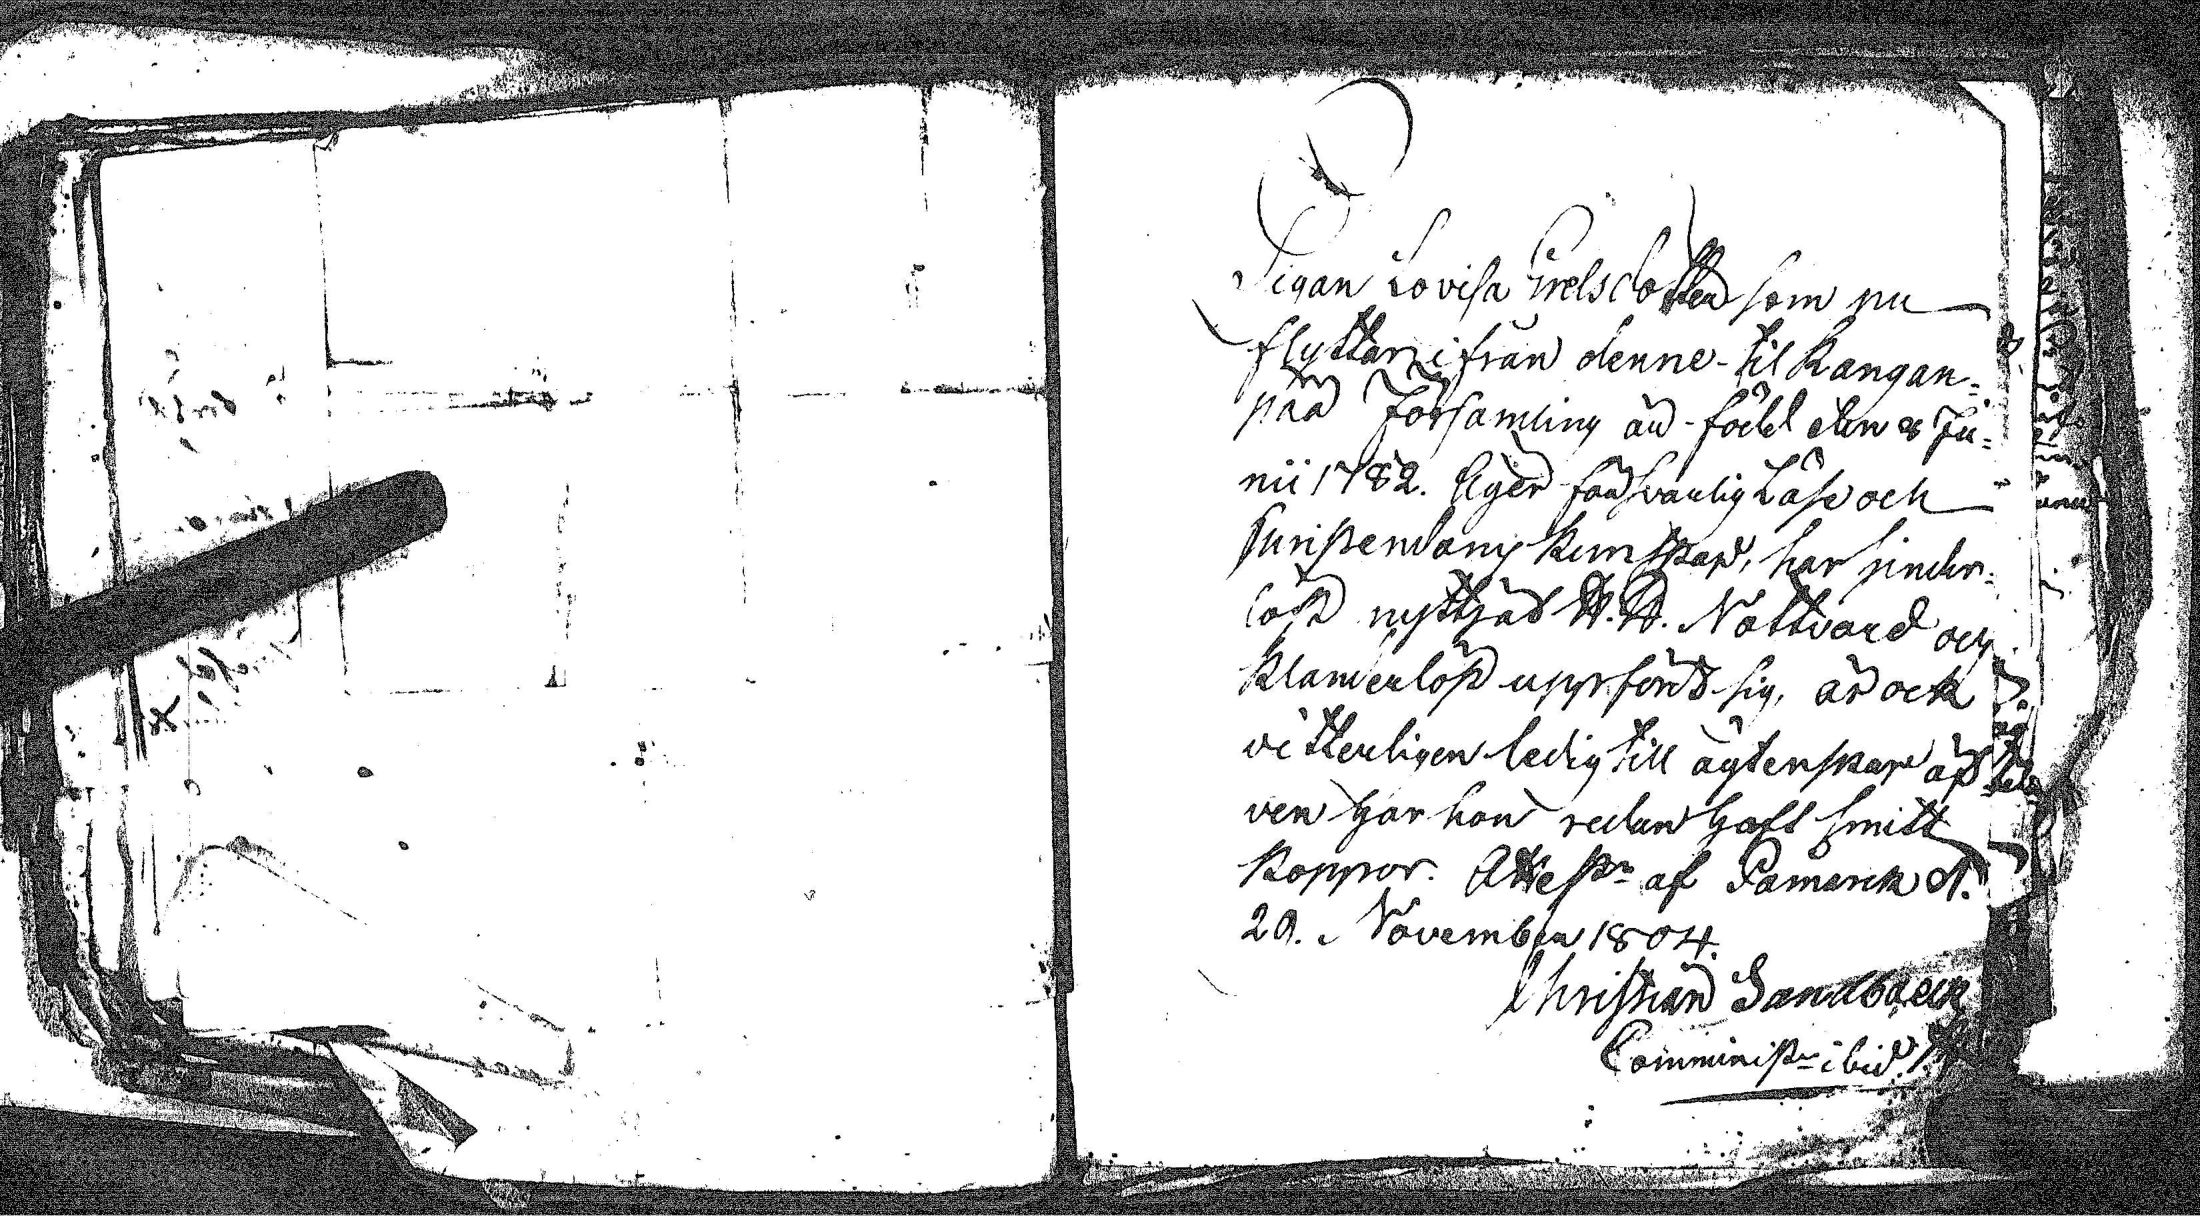 Pigan Lovisa Grelsdotter som nu
flyttar ifrån denne til Kangan=
pää Församling är född den 8 Ju=
nii 1782. Eger försvarlig Läse och
Christendoms kunskap, har hinder=
löst nyttjat H. H. Nattvard och
klanderlöst uppfördt sig, är ock
vitterligen ledig till ägtenskap äf
ven har hon redan haft smitt
koppor. Attest:r af Påmark d.
29. November 1804.
Christian Sandbäck
Comminist:r ibid.